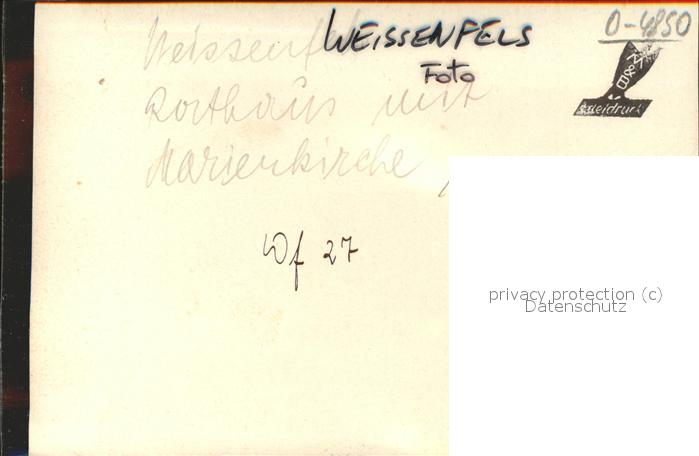 WEISSENFELS
Foto
O-4850
Weissenf
Rathaus mit
Marienkirche
Wf 27
privacy protection (c)
Datenschutz